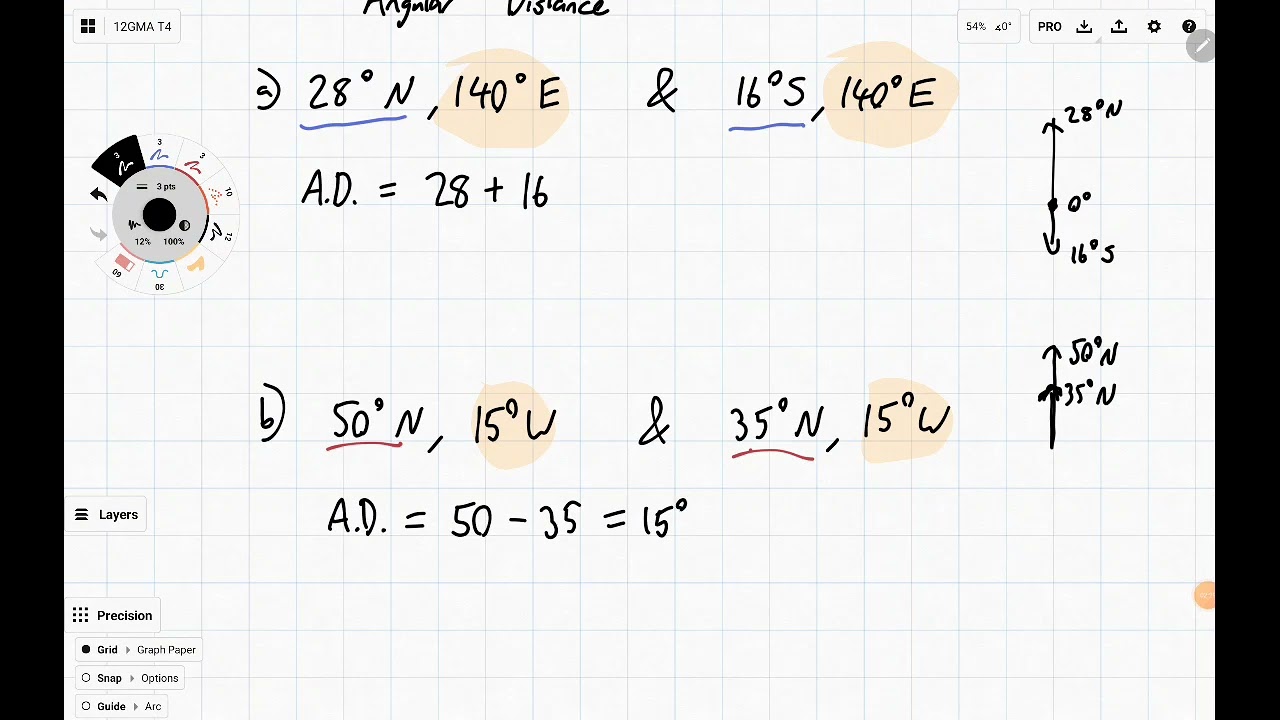 Angular Distance
12GMA T4
54% ∡0°
PRO
a) 28° N, 140° E & 16° S, 140° E
28° N
0°
16° S
A.D. = 28 + 16
3
3
3
3 pts
12% 100%
10
12
30
60
50° N
35° N
b) 50° N, 15° W & 35° N, 15° W
A.D. = 50 - 35 = 15°
Layers
Precision
Grid Graph Paper
Snap Options
Guide Arc